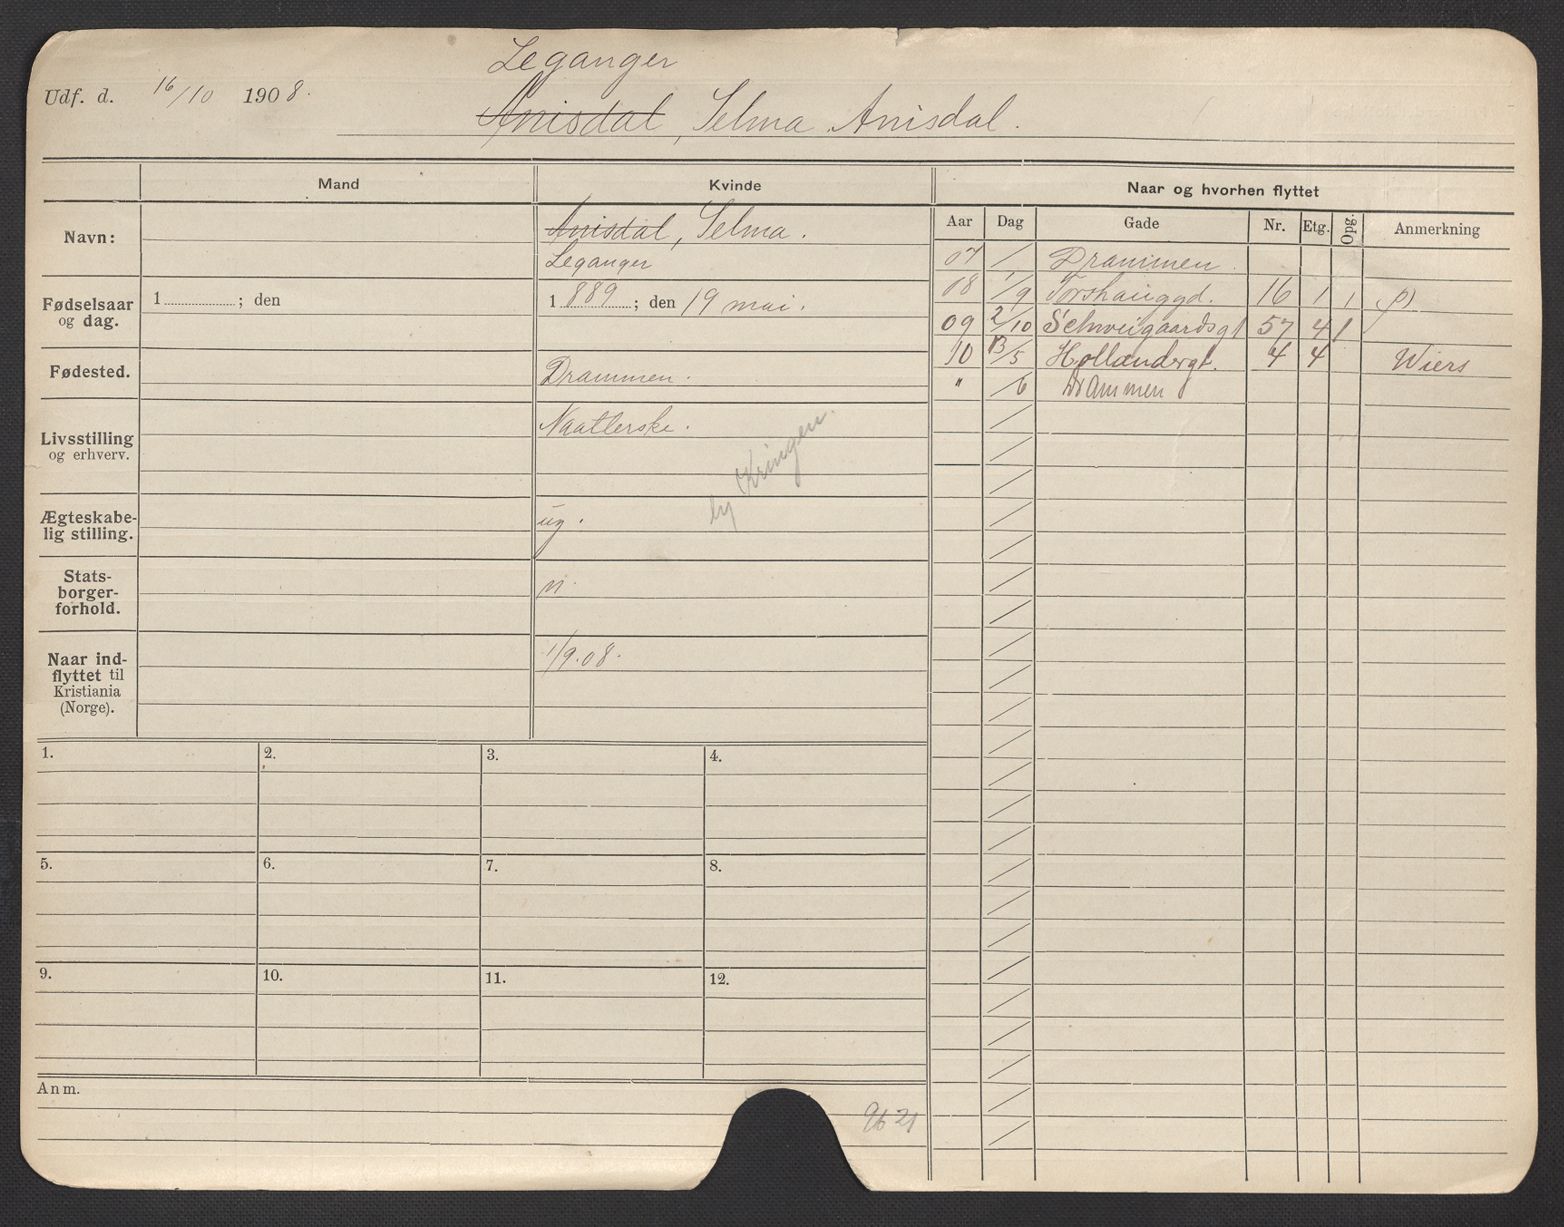 Leganger
Udf. d. 16/10 1908.
Anisdal, Selma Anisdal.
Mand
Kvinde
Naar og hvorhen flyttet
Navn:
Anisdal, Selma.
Leganger
Aar Dag Gade Nr. Etg. Opg. Anmerkning
07 / Drammen.
08 1/9 Torshauggd. 16 1 1
09 2/10 Schweigaardsgt 57 4 1
10 13/5 Hollændergt. 4 4 Wiers
" /6 Drammen
Fødselsaar og dag.
1 ; den
1 889 ; den 19 mai.
Fødested.
Drammen.
Livsstilling og erhverv.
by Kringen.
Ægteskabe-
lig stilling.
ug.
Stats-
borger-
forhold.
n.
Naar ind-
flyttet til
Kristiania
(Norge).
1/9.08.
1. 2. 3. 4.
5. 6. 7. 8.
9. 10. 11. 12.
Anm.
9621